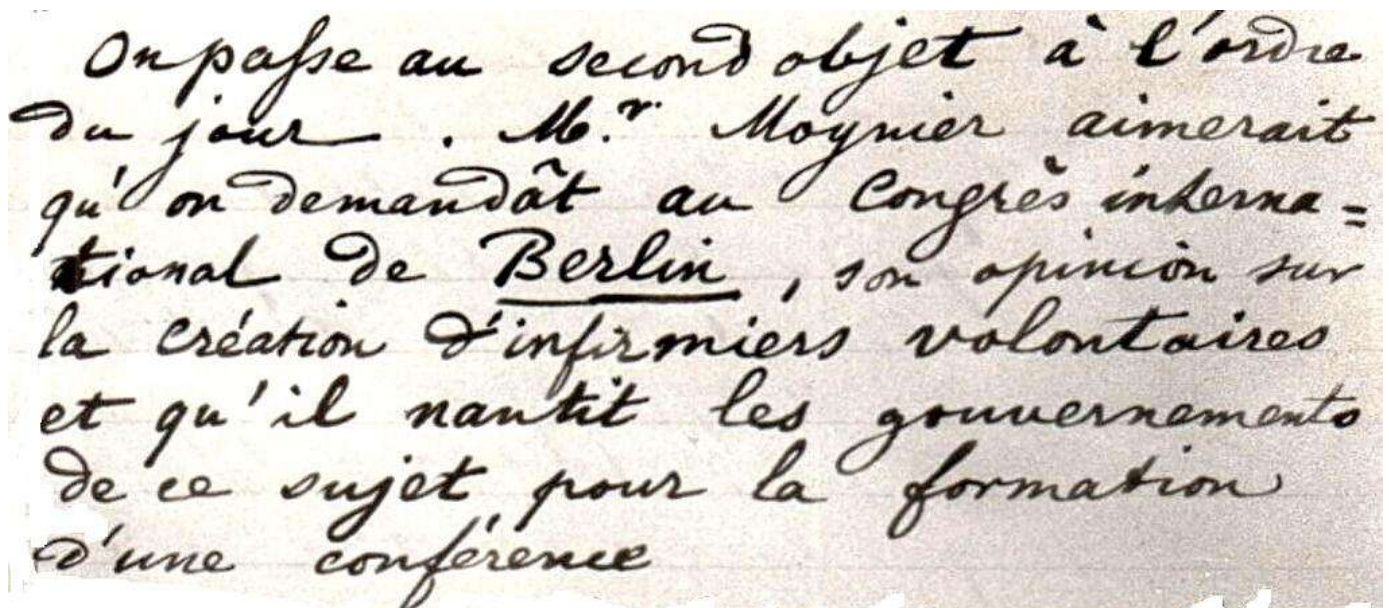 On passe au second objet à l'ordre
du jour. Mr. Moynier aimerait
qu'on demandât au Congrès interna=
tional de Berlin, son opinion sur
la création d'infirmiers volontaires
et qu'il nantit les gouvernements
de ce sujet pour la formation
d'une conférence